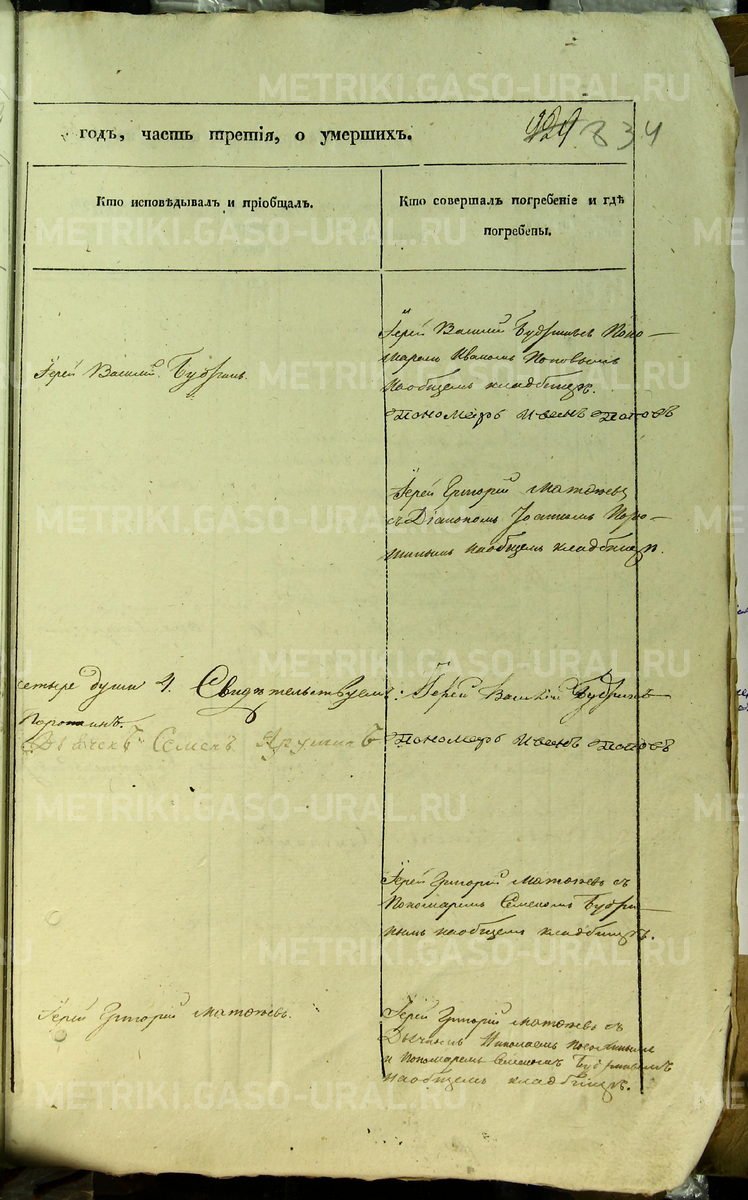 годъ, часть третія, о умершихъ.
834
Кто исповѣдывалъ и пріобщалъ.
Кто совершалъ погребеніе и гдѣ
погребены.
Іерей Василій Будринъ.
Іерей Василій Будринъ съ Поно-
маремъ Иваномъ Поповымъ
на общемъ кладбищѣ.
Пономарь Иванъ Поповъ
Іерей Григорій
съ Діакономъ Іоанномъ Поро-
шинымъ на общемъ кладбищѣ.
четыре души 4. Свидѣтельствуемъ: Іерей Василій Будринъ
Порошинъ.
Дьячекъ Семенъ
Пономарь Иванъ Поповъ
Іерей Григорій съ
Пономаремъ Семеномъ Будри-
нымъ на общемъ кладбищѣ.
Іерей Григорій
Іерей Григорій съ
Дьячкомъ Николаемъ
и Пономаремъ Семеномъ Будринымъ
на общемъ кладбищѣ.
METRIKI.GASO-URAL.RU